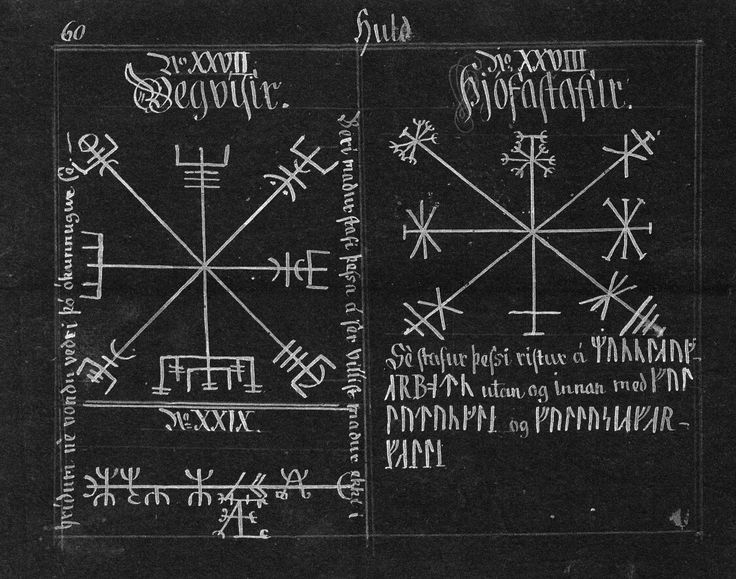 60
Huld
No. XXVII
Vegvísir.
Beri maður stafi þessa á sér villist maður ekki í
hríðum né vondu veðri þó ókunnugur sé
No. XXIX.
No. XXVIII
Þjófastafur.
Sé stafur þessi ristur á
utan og innan með
og